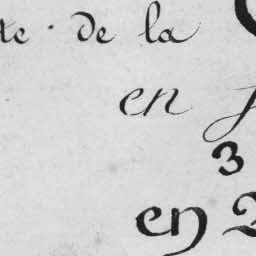 te. de la
en
3
en 2